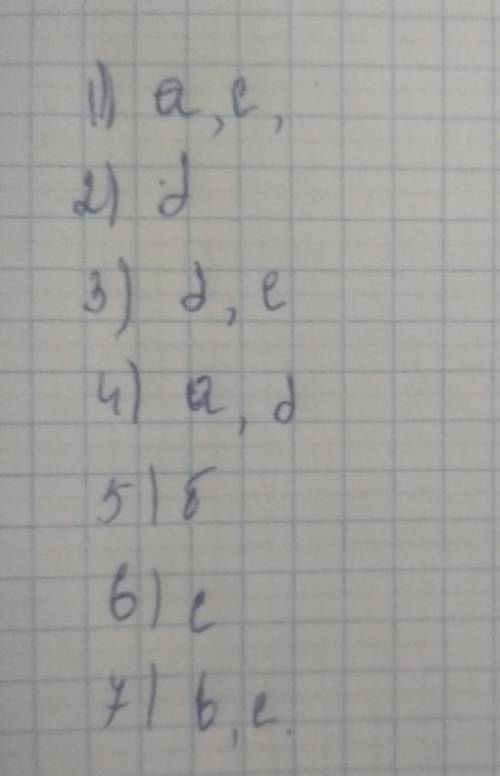 1) a, e,
2) d
3) d, e
4) a, d
5) б
6) c
7) b, e.